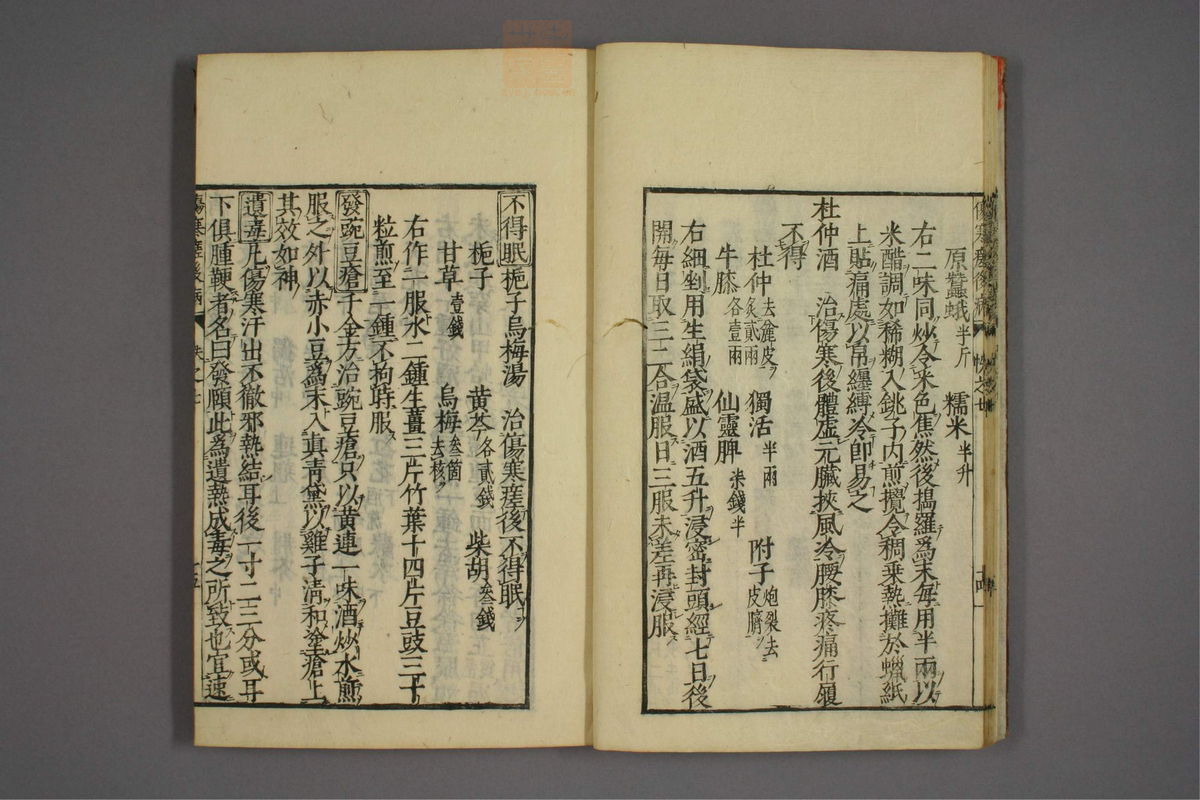 原蠶蛾半斤　糯米半升
右二味同炒令米色焦然後搗羅爲末每用半兩以
米醋調如稀糊入銚子内煎攪令稠乗熱攤於蠟紙
上貼痛處以帛纒縛冷卽易之
杜仲酒　治傷寒後體虛元臟挾風冷腰膝疼痛行履
不得
杜仲去麄皮炙貳兩　獨活半兩　附子炮裂去皮臍
牛膝各壹兩　仙靈脾柒錢半
右細剉用生絹袋盛以酒五升浸密封頭經七日後
開每日取三二合温服日三服未差再浸服
不得眠梔子烏梅湯　治傷寒瘥後不得眠
梔子　黄芩各貳錢　柴胡叁錢
甘草壹錢　烏梅叁箇去核
右作一服水二鍾生薑三片竹葉十四片豆豉三十
粒煎至一鍾不拘時服
發豌豆瘡千金方治豌豆瘡只以黄連一味酒炒水煎
服之外以赤小豆爲末入真青黛以雞子清和塗瘡上
其效如神
遺毒凡傷寒汗出不徹邪熱結耳後一寸二三分或耳
下俱腫鞕者名曰發頤此爲遺熱成毒之所致也宜速